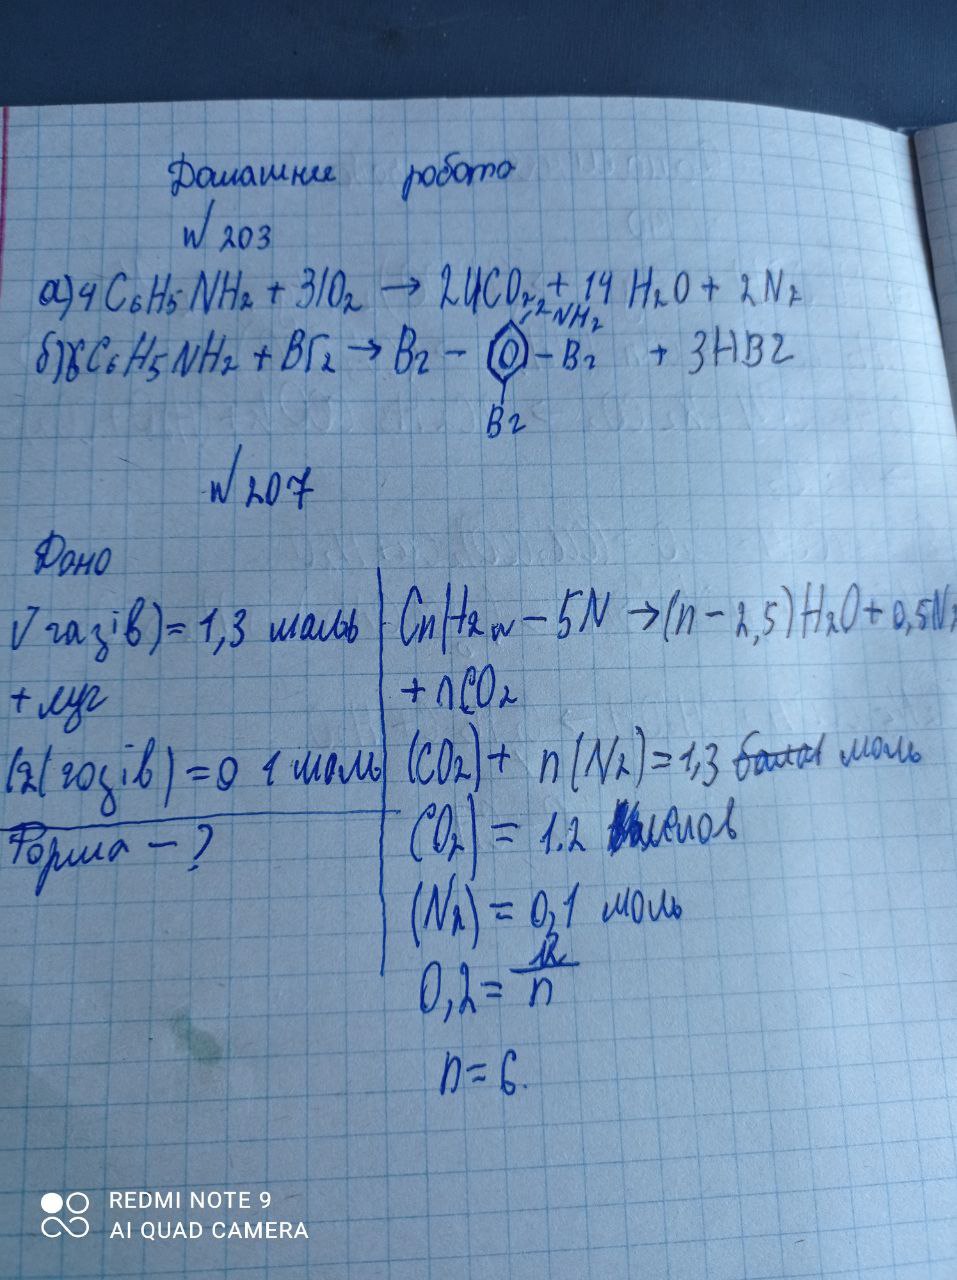 Домашнее робота
№203
а) 4C₆H₅NH₂ + 31O₂ → 24CO₂ + 14 H₂O + 2N₂
б) C₆H₅NH₂ + Br₂ → Br - - Br + 3HBr
NH₂
Br
№207
Дано
V газів) = 1,3 моль
+ луг
(газів) = 0 1 моль
Форма - ?
CnH2n - 5N → (n - 2,5) H₂O + 0,5N₂
+ nCO₂
(CO₂) + n (N₂) = 1,3 моль
(CO₂) = 1.2
(N₂) = 0,1 моль
0,2 = 12/n
n = 6.
REDMI NOTE 9
AI QUAD CAMERA